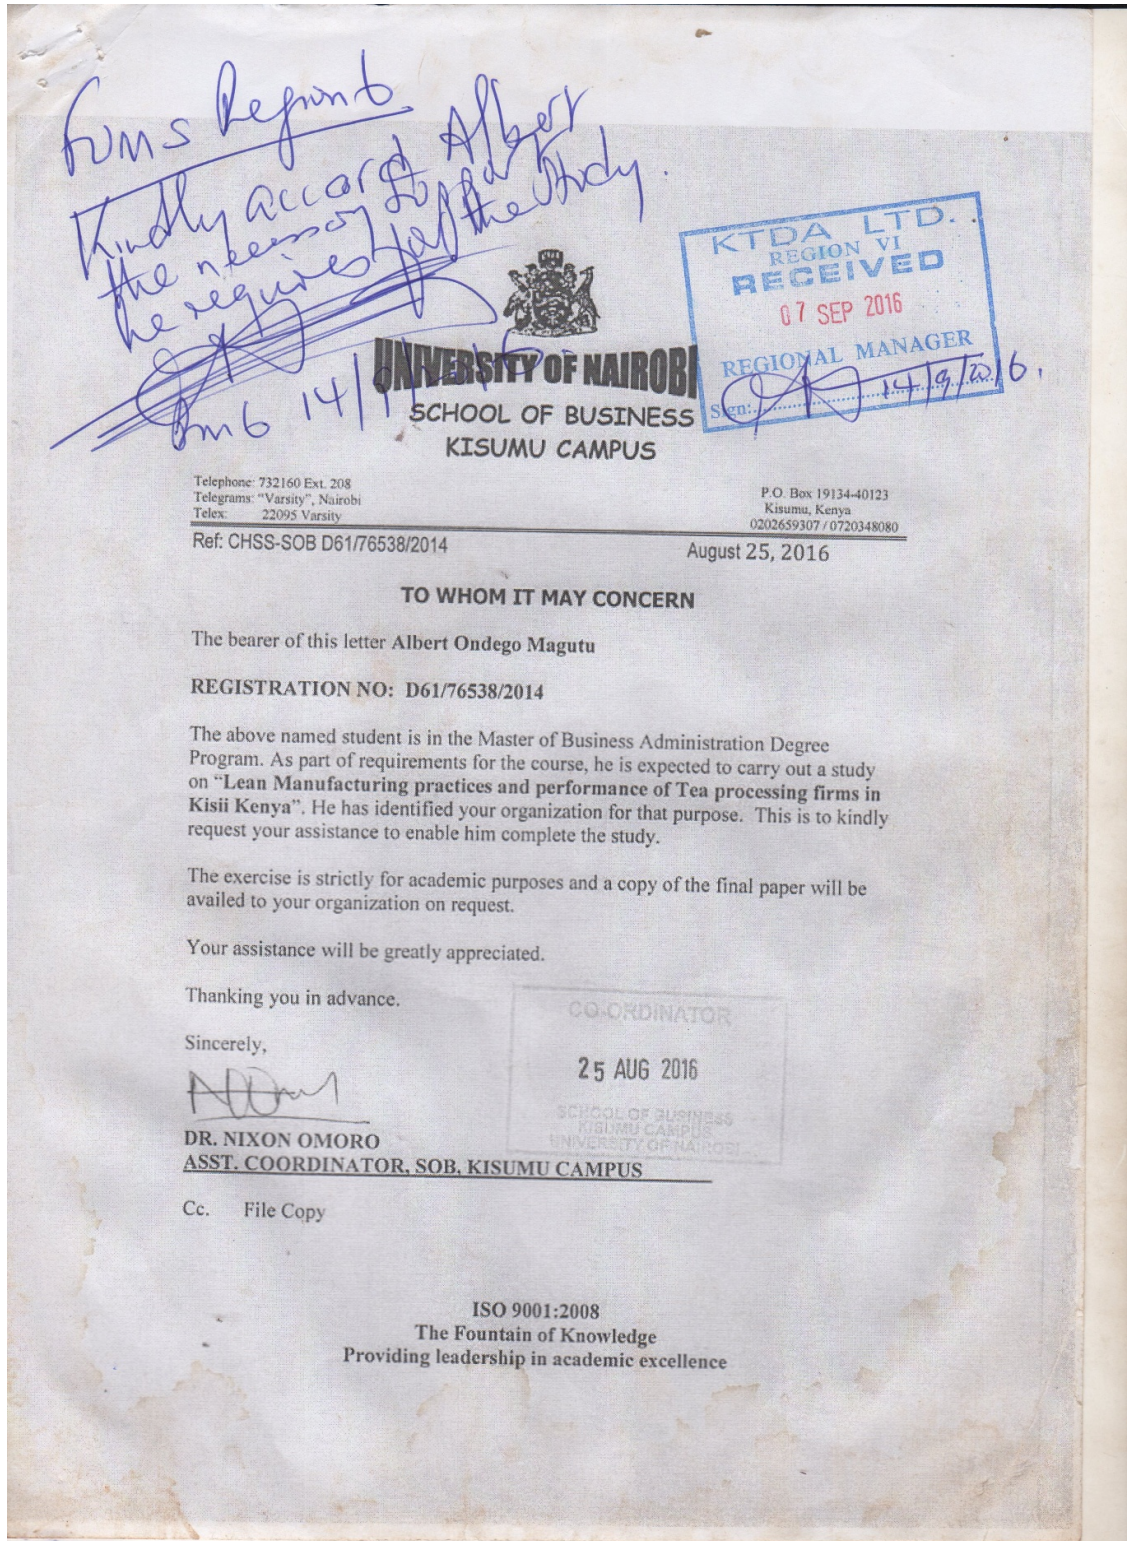 FUMS Region 6
Kindly accord Albert
the necessary support
he requires for the study.
RM6 14/9/2016.
KTDA LTD.
REGION VI
RECEIVED
07 SEP 2016
REGIONAL MANAGER
Sign: 14/9/2016.
UNIVERSITY OF NAIROBI
SCHOOL OF BUSINESS
KISUMU CAMPUS
Telephone: 732160 Ext. 208
Telegrams: "Varsity", Nairobi
Telex: 22095 Varsity
P.O. Box 19134-40123
Kisumu, Kenya
0202659307 / 0720348080
Ref: CHSS-SOB D61/76538/2014
August 25, 2016
TO WHOM IT MAY CONCERN
The bearer of this letter Albert Ondego Magutu
REGISTRATION NO: D61/76538/2014
The above named student is in the Master of Business Administration Degree
Program. As part of requirements for the course, he is expected to carry out a study
on “Lean Manufacturing practices and performance of Tea processing firms in
Kisii Kenya”. He has identified your organization for that purpose. This is to kindly
request your assistance to enable him complete the study.
The exercise is strictly for academic purposes and a copy of the final paper will be
availed to your organization on request.
Your assistance will be greatly appreciated.
Thanking you in advance.
Sincerely,
CO-ORDINATOR
25 AUG 2016
SCHOOL OF BUSINESS
KISUMU CAMPUS
UNIVERSITY OF NAIROBI
DR. NIXON OMORO
ASST. COORDINATOR, SOB, KISUMU CAMPUS
Cc. File Copy
ISO 9001:2008
The Fountain of Knowledge
Providing leadership in academic excellence